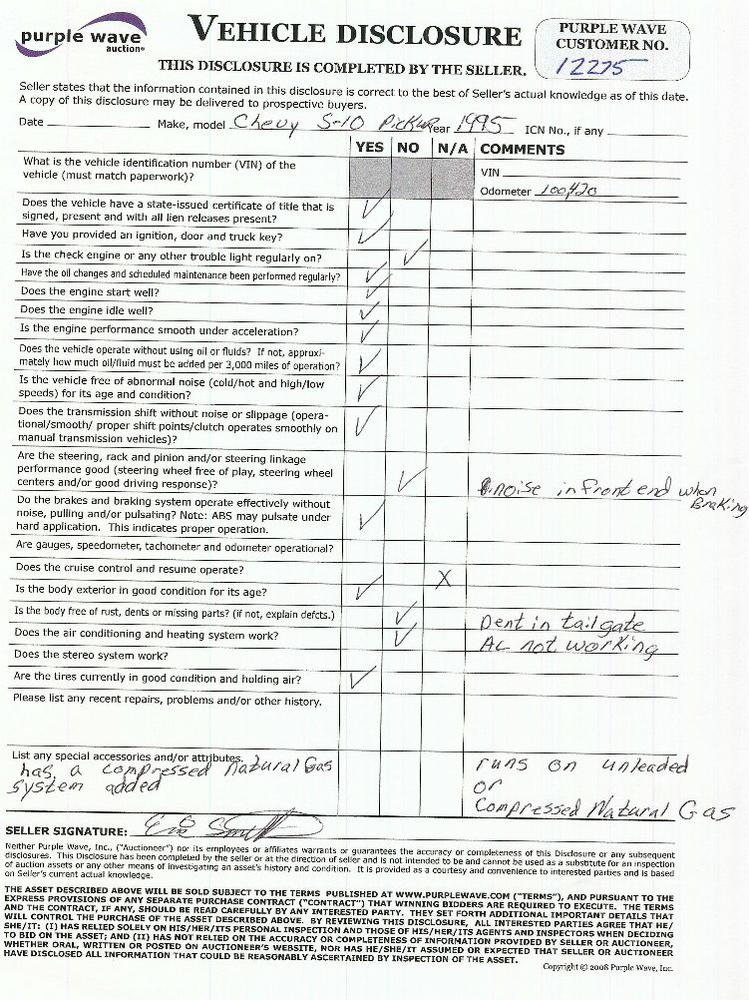 purple wave
auction®
VEHICLE DISCLOSURE
THIS DISCLOSURE IS COMPLETED BY THE SELLER.
PURPLE WAVE
CUSTOMER NO.
12275
Seller states that the information contained in this disclosure is correct to the best of Seller's actual knowledge as of this date.
A copy of this disclosure may be delivered to prospective buyers.
Date Make, model Chevy S-10 Pickup Year 1995 ICN No., if any
YES NO N/A COMMENTS
What is the vehicle identification number (VIN) of the
vehicle (must match paperwork)?
VIN
Odometer 100420
Does the vehicle have a state-issued certificate of title that is
signed, present and with all lien releases present? ✓
Have you provided an ignition, door and truck key? ✓
Is the check engine or any other trouble light regularly on? ✓
Have the oil changes and scheduled maintenance been performed regularly? ✓
Does the engine start well? ✓
Does the engine idle well? ✓
Is the engine performance smooth under acceleration? ✓
Does the vehicle operate without using oil or fluids? If not, approxi-
mately how much oil/fluid must be added per 3,000 miles of operation? ✓
Is the vehicle free of abnormal noise (cold/hot and high/low
speeds) for its age and condition? ✓
Does the transmission shift without noise or slippage (opera-
tional/smooth/ proper shift points/clutch operates smoothly on
manual transmission vehicles)? ✓
Are the steering, rack and pinion and/or steering linkage
performance good (steering wheel free of play, steering wheel
centers and/or good driving response)? ✓ noise in front end when
Braking
Do the brakes and braking system operate effectively without
noise, pulling and/or pulsating? Note: ABS may pulsate under
hard application. This indicates proper operation. ✓
Are gauges, speedometer, tachometer and odometer operational?
Does the cruise control and resume operate? X
Is the body exterior in good condition for its age? ✓
Is the body free of rust, dents or missing parts? (if not, explain defcts.) ✓ Dent in tailgate
Does the air conditioning and heating system work? ✓ AC not working
Does the stereo system work?
Are the tires currently in good condition and holding air? ✓
Please list any recent repairs, problems and/or other history.
List any special accessories and/or attributes.
has a compressed Natural Gas
system added
runs on unleaded
or
Compressed Natural Gas
SELLER SIGNATURE:
Neither Purple Wave, Inc., ("Auctioneer") nor its employees or affiliates warrants or guarantees the accuracy or completeness of this Disclosure or any subsequent
disclosures. This Disclosure has been completed by the seller or at the direction of seller and is not intended to be and cannot be used as a substitute for an inspection
of auction assets or any other means of investigating an asset's history and condition. It is provided as a courtesy and convenience to interested parties and is based
on Seller's current actual knowledge.
THE ASSET DESCRIBED ABOVE WILL BE SOLD SUBJECT TO THE TERMS PUBLISHED AT WWW.PURPLEWAVE.COM ("TERMS"), AND PURSUANT TO THE
EXPRESS PROVISIONS OF ANY SEPARATE PURCHASE CONTRACT ("CONTRACT") THAT WINNING BIDDERS ARE REQUIRED TO EXECUTE. THE TERMS
AND THE CONTRACT, IF ANY, SHOULD BE READ CAREFULLY BY ANY INTERESTED PARTY. THEY SET FORTH ADDITIONAL IMPORTANT DETAILS THAT
WILL CONTROL THE PURCHASE OF THE ASSET DESCRIBED ABOVE. BY REVIEWING THIS DISCLOSURE, ALL INTERESTED PARTIES AGREE THAT HE/
SHE/IT: (I) HAS RELIED SOLELY ON HIS/HER/ITS PERSONAL INSPECTION AND THOSE OF HIS/HER/ITS AGENTS AND INSPECTORS WHEN DECIDING
TO BID ON THE ASSET; AND (II) HAS NOT RELIED ON THE ACCURACY OR COMPLETENESS OF INFORMATION PROVIDED BY SELLER OR AUCTIONEER,
WHETHER ORAL, WRITTEN OR POSTED ON AUCTIONEER'S WEBSITE, NOR HAS HE/SHE/IT ASSUMED OR EXPECTED THAT SELLER OR AUCTIONEER
HAVE DISCLOSED ALL INFORMATION THAT COULD BE REASONABLY ASCERTAINED BY INSPECTION OF THE ASSET.
Copyright © 2008 Purple Wave, Inc.